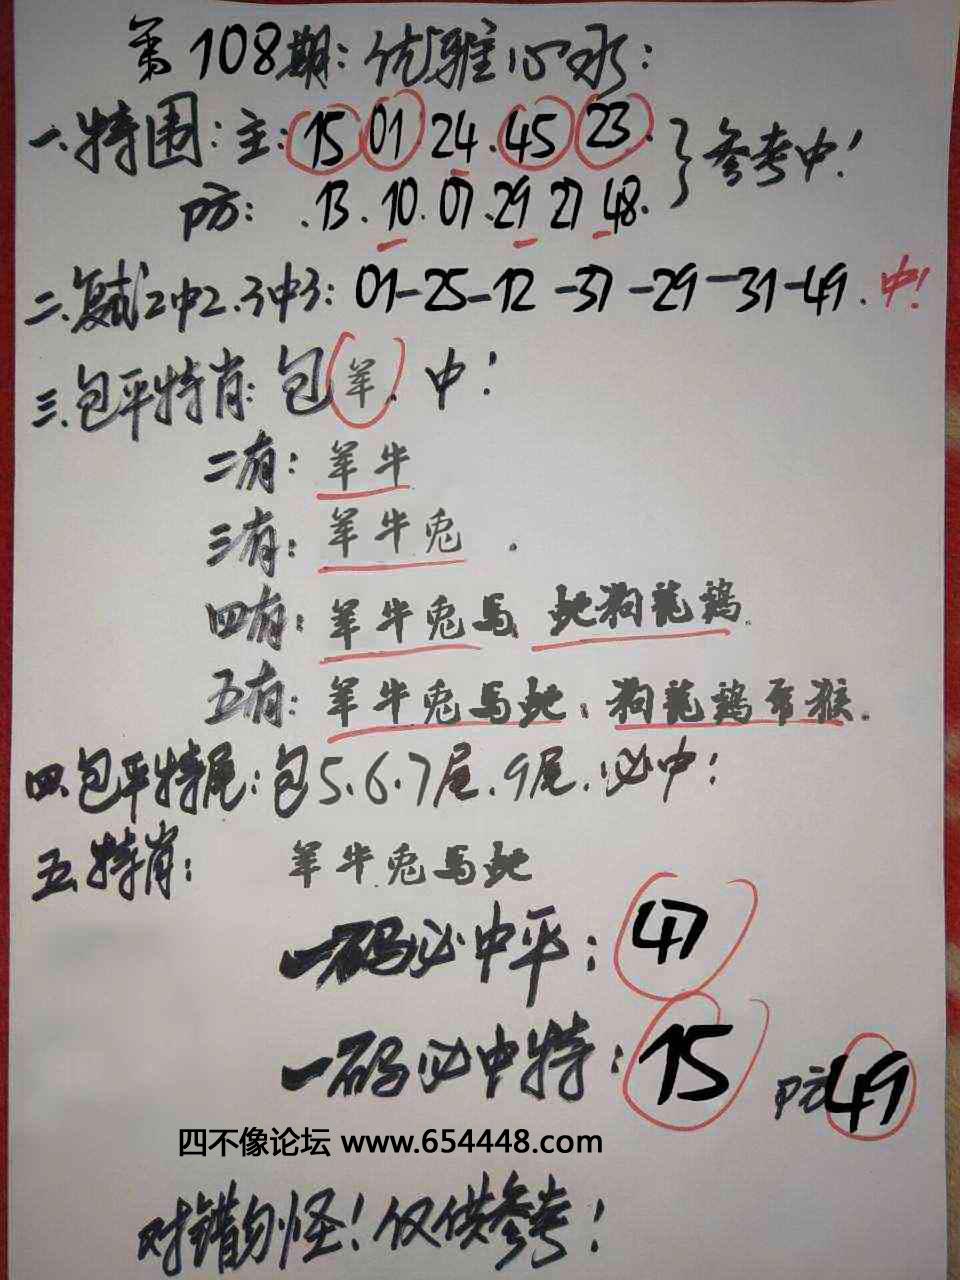 第108期:优雅心水:
一.特围:主:15 01 24.45 23.}参考中!
防:.13.10.07.29 27 48.
二.复试2中2.3中3:01-25-12-37-29-31-49.中!
三.包平特肖:包羊.中!
二有:羊牛
三有:羊牛兔.
四有:羊牛兔马 蛇狗龙鸡.
五有:羊牛兔马蛇:狗龙鸡 猴.
四.包平特尾:包5.6.7尾.9尾.必中!
五.特肖:羊牛.兔马蛇
一码必中平:47
一码必中特:15 防49
四不像论坛 www.654448.com
对错勿怪!仅供参考!